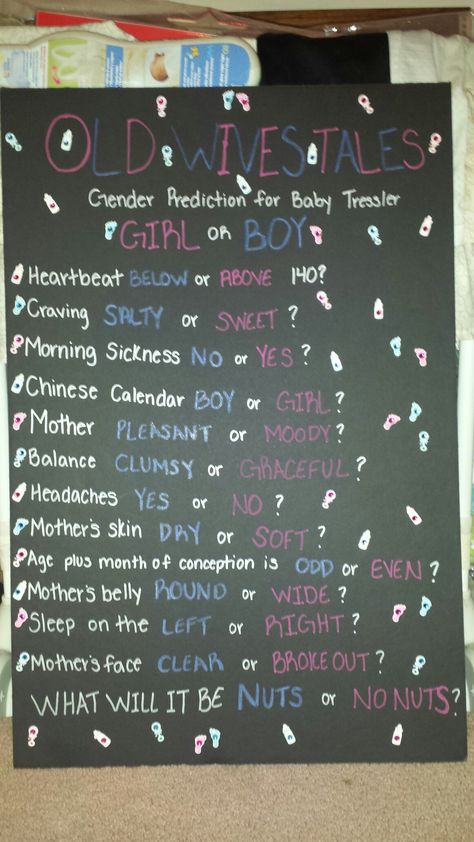 OLD WIVES TALES
Gender Prediction for Baby Tressler
GIRL OR BOY
Heartbeat BELOW or ABOVE 140?
Craving SALTY or SWEET?
Morning Sickness NO or YES?
Chinese Calendar BOY or GIRL?
Mother PLEASANT or MOODY?
Balance CLUMSY or GRACEFUL?
Headaches YES or NO?
Mother's skin DRY or SOFT?
Age plus month of conception is ODD or EVEN?
Mother's belly ROUND or WIDE?
Sleep on the LEFT or RIGHT?
Mother's face CLEAR or BROKE OUT?
WHAT WILL IT BE NUTS or NO NUTS?